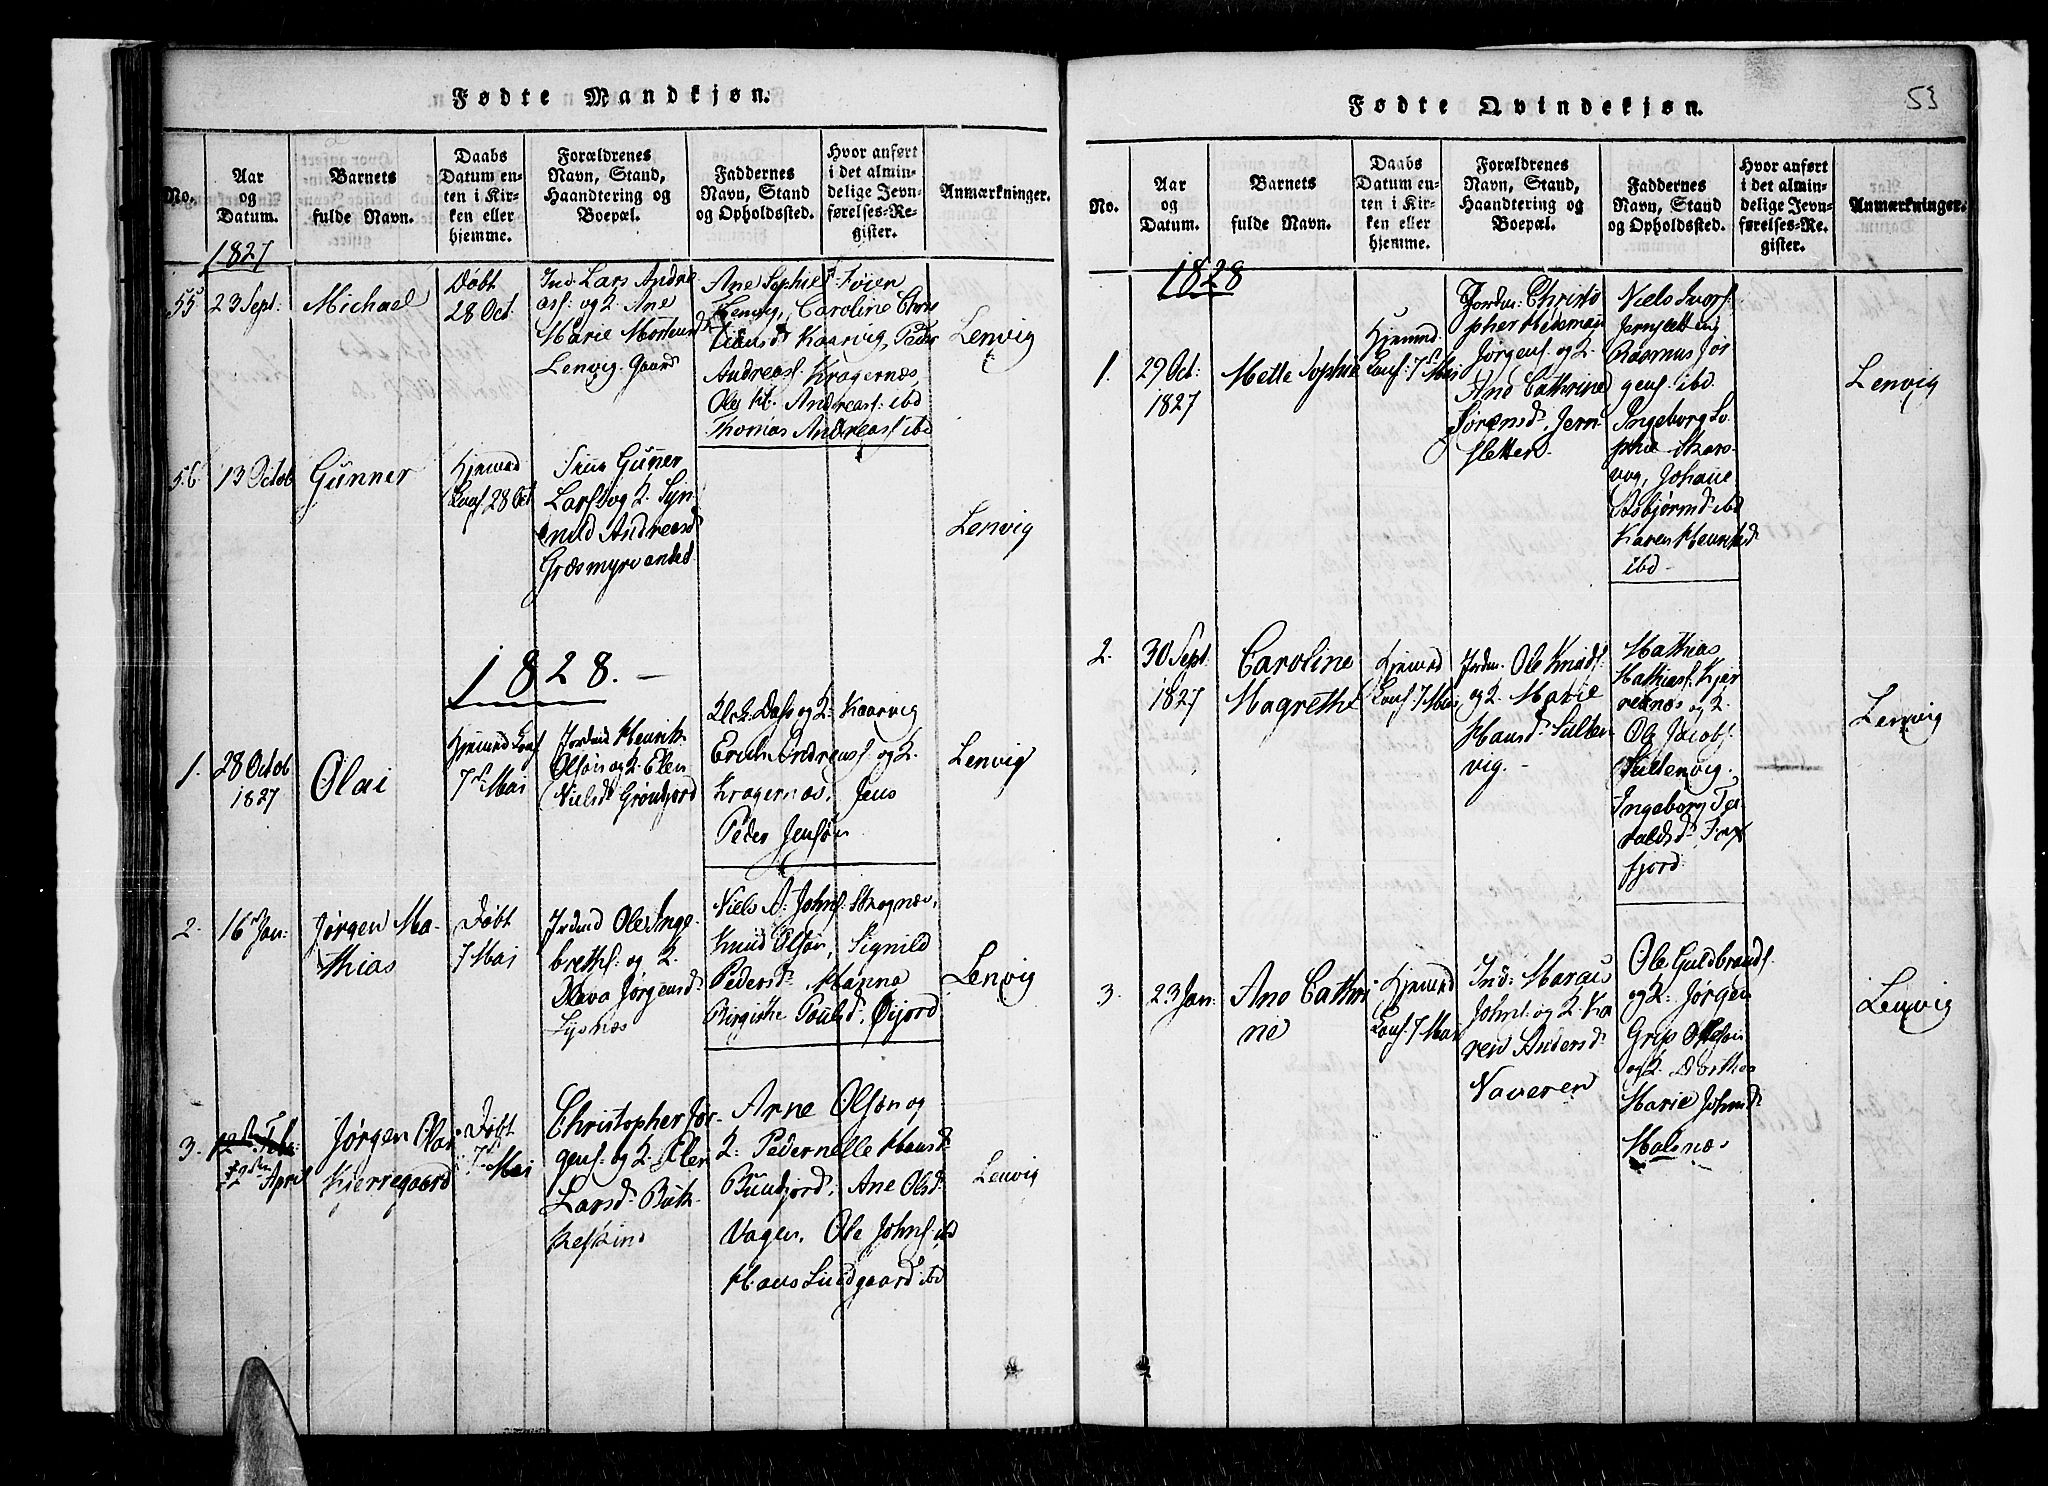 Fødte Mandkjøn.
No.
Aar
og
Datum.
Barnets
fulde Navn.
Daabs
Datum en-
ten i Kir-
ken eller
hjemme.
Forældrenes
Navn, Stand,
Haandtering og
Boepæl.
Faddernes
Navn, Stand
og Opholdssted.
Hvor anført
i det almin-
delige Jevn-
førelses-Re-
gister.
Anmærkninger.
1827
55
23 Sept.
Michael
Døbt
28 Oct.
Ind. Lars Andre
asf: og K. Ane
Marie Mortensd
Lenvig Gaard
Ane Sophie Føien
Caroline Chris
tiansd Kaarvig, Peder
Andreasf. Kragernæs,
Ole Andreasf: ibd
Thomas Andreasf ibd
Lenvig
56
13 Octob
Gunner
Hjemmed
28 Oct
Guner
Larsf og K. Syn
nild Andreasd
Græsmyrvandet
Lenvig
1828.
1.
28 Octob
1827
Olai
Hjemmed
7de Mai
Jordmd Henrik
Olson og K. Elen
Nielsd Grønfjord
Dass og K. Kaarvig
Erich Andreasf og K.
Kragernæs, Jens
Peder Jensøn
Lenvig
2.
16 Jan:
Jørgen Ma-
thias
Døbt
7 Mai
Jordmd Ole Inge-
brethf: og K.
Olava Jørgensd
Lysnæs
Niels A: Johnf.
Knud Olsøn, Signild
Pedersd. Hanna
Birgithe Paulsd. Øijord
Lenvig
3.
12 Feb:
12 April
Jørgen Olai
Kierregaard
Døbt
7de Mai
Christopher Jør-
gensf. og K. Elen
Larsd. Buk-
keskind
Arne Olsøn og
K: Pedernelle Hansd
Ane Olsd.
Vagen, Ole Johnf ibd
Hans Lindgaard ibd
Lenvig
Fødte Qvindekjøn.
53
No.
Aar
og
Datum.
Barnets
fulde Navn.
Daabs
Datum en-
ten i Kir-
ken eller
hjemme.
Forældrenes
Navn, Stand,
Haandtering og
Boepæl.
Faddernes
Navn, Stand
og Opholdssted.
Hvor anført
i det almin-
delige Jevn-
førelses-Re-
gister.
Anmærkninger.
1828
1.
29 Oct:
1827
Mette Sophie
Hjemmed
7 Mai
Jordm: Christo
pher
Jørgensf. og K.
Ane Cathrine
Sørensd. Jern
sletten
Niels
Jernsletten
Rasmus Jør
gensf. ibd
Ingeborg So
phie
Johane
Asbjørnsd ibd
Karen Henrichsd
ibd
Lenvig
2.
30 Sept:
1827
Caroline
Magrethe
Hjemmed
7 Mai
Jordm. Ole Knudsf.
og K. Marie
Hansd. Sulten
vig.
Mathias
Mathiasf. Kjer
renæs og K.
Ole Jacobf.
Sultenvig.
Ingeborg
fjord
Lenvig
3.
23 Jan:
Ane Cathri
ne
Hjemmed
7 Mai
Ind: Marcus
Johnf. og K. Ka
ren Andersd.
Navaren
Ole Guldbrandf.
og K. Jørgen
Grip Ollesøn
og K. Dorthea
Marie Johnsd.
Malsnæs
Lenvig